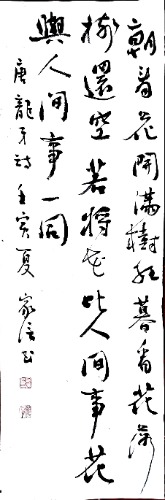 朝看花開滿樹紅暮看花落
樹還空若將花比人間事花
與人間事一同
唐龍牙詩壬寅夏家信書